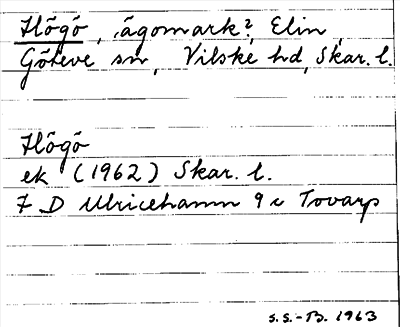 Högö, ägomark?, Elin,
Göteve sn, Vilske hd, Skar. l.
Högö
ek (1962) Skar. l.
7 D Ulricehamn 9 c Tovarp
S.S.-B. 1963